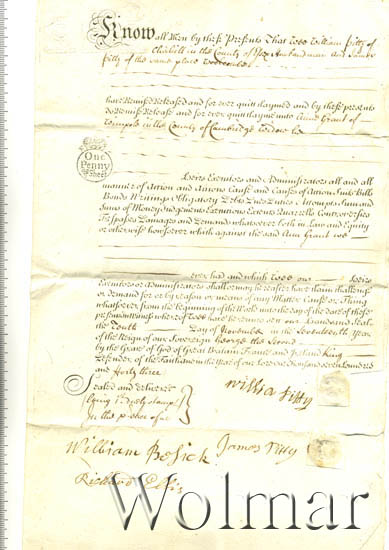 Know all Men by these Presents That Wee William Fitty of
in the County of Husbandman And James
Fitty of the same place
have Remised Released and for ever quitt claymed and by these presents
do Remise Release and for ever quitt claym unto Anne Grant of
in the County of Cambridge Widow her
One
Penny
Heirs Executors and Administrators all and all
manner of Action and Actions Cause and Causes of Action Suits Bills
Bonds Writings Obligatory Debts Dues Duties Accompts Sum and
Sums of Money Judgments Executions Extents Quarrells Controversies
Trespasses Damages and Demands whatsoever both in Law and Equity
or otherwise howsoever which against the said Ann Grant Wee
ever had and which Wee our Heirs
Executors or Administrators shall or may hereafter have claim challenge
or demand for or by reason or means of any Matter Cause or Thing
whatsoever from the beginning of the World unto the day of the date of these
presents In Witness whereof Wee have hereunto set our Hands and Seals
the Tenth Day of November in the Seventeenth Year
of the Reign of our Sovereign George the Second
by the Grace of God of Great Britain France and Ireland King
Defender of the Faith and in the Year of our Lord One Thousand Seven Hundred
and forty three
Sealed and delivered
(being duly stampt
In the presence of
William Fitty
William Pesick James Fitty
Richard Ellis
Wolmar